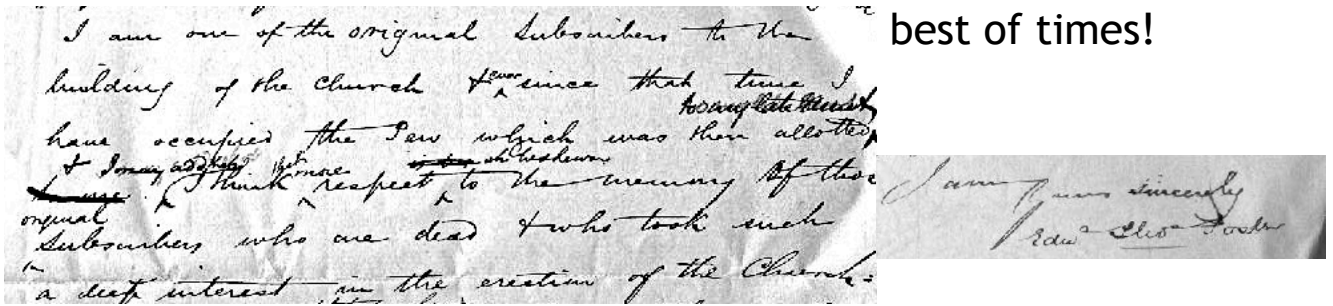 I am one of the original Subscribers to the
building of the Church & ever since that time I
have occupied the Pew which was then allotted
to my late
& I may add yet more
I think respect to the memory of those
original
Subscribers who are dead & who took such
a deep interest in the erection of the Church =
best of times!
I am
Yours sincerely
Edwd Thos Foster